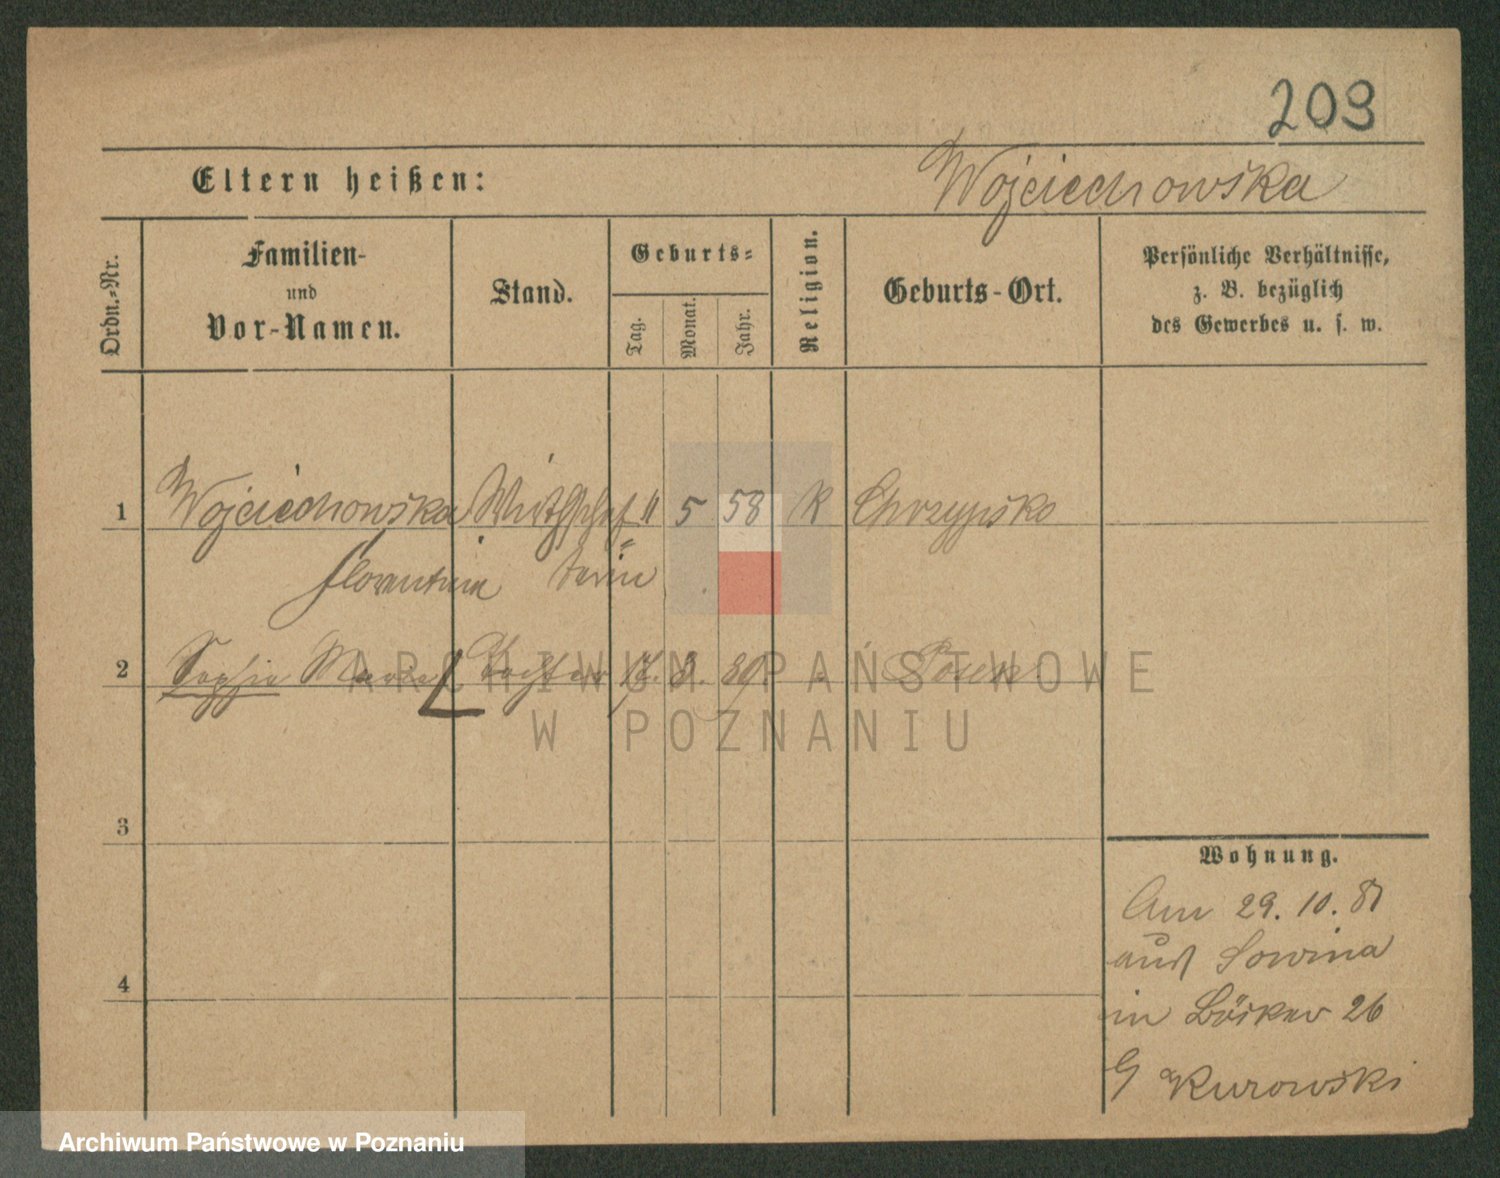 209
Eltern heißen:
Wojciechowska
Ordn.-Nr.
Familien-
und
Vor-Namen.
Stand.
Geburts-
Tag.
Monat.
Jahr.
Religion.
Geburts-Ort.
Persönliche Verhältnisse,
z. B. bezüglich
des Gewerbes u. s. w.
1 Wojciechowska Wirthschaf 11 5 58 K Chrzypsko
Florentina terin
2 Sophie Tochter 17. 3. 89. Posen
ARCHIWUM PAŃSTWOWE
W POZNANIU
3
Wohnung.
Am 29. 10. 81
aus Sowina
in Bäcker 26
4
G Kurowski
Archiwum Państwowe w Poznaniu